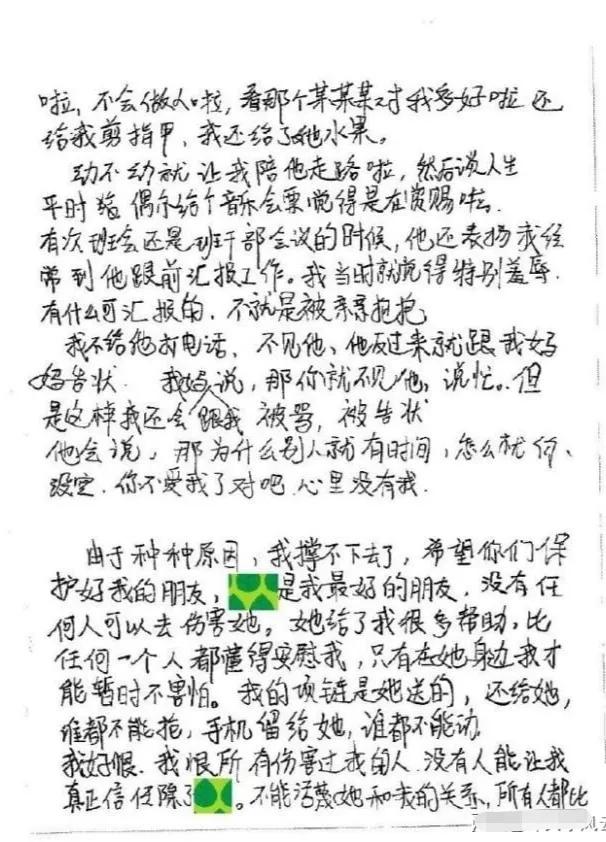 啦，不会做人啦，看那个某某某对我多好啦还
给我剪指甲，我还给了她水果。
动不动就让我陪他走路啦，然后说人生
平时 偶尔给个音乐会票觉得是在赏赐啦
有次班会还是班干部会议的时候，他还表扬我经
常到他跟前汇报工作。我当时就觉得特别羞辱.
有什么可汇报的，不就是被亲亲抱抱
我不给他打电话，不见他、他反过来就跟我妈
妈告状. 我妈说，那你就不见他，说忙。但
是这样我还会 跟我 被骂，被告状
他会说，那为什么别人就有时间，怎么就你、
没空. 你不爱我了对吧. 心里没有我.
由于种种原因，我撑不下去了，希望你们保
护好我的朋友， 是我最好的朋友，没有任
何人可以去伤害她，她给了我很多帮助，比
任何一个人都懂得安慰我，只有在她身边我才
能暂时不害怕。我的项链是她送的，还给她，
谁都不能抢，手机留给她，谁都不能动
我好恨. 我恨所有伤害过我的人. 没有人能让我
真正信任除了 。不能污蔑她和我的关系，所有人都比